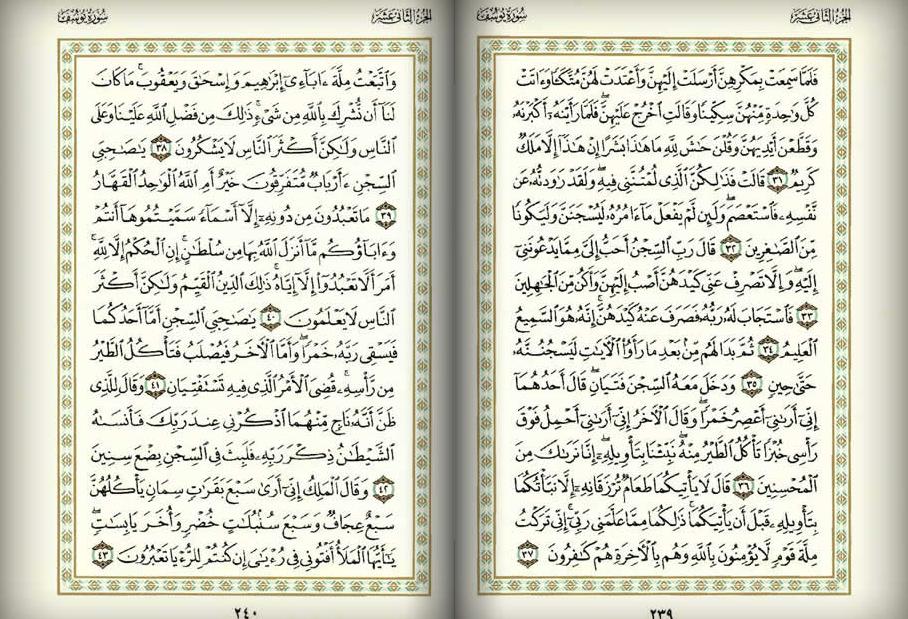 الجزء الثاني عشر
سورة يوسف
فَلَمَّا سَمِعَتْ بِمَكْرِهِنَّ أَرْسَلَتْ إِلَيْهِنَّ وَأَعْتَدَتْ لَهُنَّ مُتَّكَـًٔا وَءَاتَتْ
كُلَّ وَٰحِدَةٍ مِّنْهُنَّ سِكِّينًا وَقَالَتِ ٱخْرُجْ عَلَيْهِنَّ ۖ فَلَمَّا رَأَيْنَهُۥٓ أَكْبَرْنَهُۥ
وَقَطَّعْنَ أَيْدِيَهُنَّ وَقُلْنَ حَٰشَ لِلَّهِ مَا هَٰذَا بَشَرًا إِنْ هَٰذَآ إِلَّا مَلَكٌ
كَرِيمٌ ٣١ قَالَتْ فَذَٰلِكُنَّ ٱلَّذِى لُمْتُنَّنِى فِيهِ ۖ وَلَقَدْ رَٰوَدتُّهُۥ عَن
نَّفْسِهِۦ فَٱسْتَعْصَمَ ۖ وَلَئِن لَّمْ يَفْعَلْ مَآ ءَامُرُهُۥ لَيُسْجَنَنَّ وَلَيَكُونًا
مِّنَ ٱلصَّٰغِرِينَ ٣٢ قَالَ رَبِّ ٱلسِّجْنُ أَحَبُّ إِلَىَّ مِمَّا يَدْعُونَنِىٓ
إِلَيْهِ ۖ وَإِلَّا تَصْرِفْ عَنِّى كَيْدَهُنَّ أَصْبُ إِلَيْهِنَّ وَأَكُن مِّنَ ٱلْجَٰهِلِينَ
٣٣ فَٱسْتَجَابَ لَهُۥ رَبُّهُۥ فَصَرَفَ عَنْهُ كَيْدَهُنَّ ۚ إِنَّهُۥ هُوَ ٱلسَّمِيعُ
ٱلْعَلِيمُ ٣٤ ثُمَّ بَدَا لَهُم مِّنۢ بَعْدِ مَا رَأَوُا۟ ٱلْءَايَٰتِ لَيَسْجُنُنَّهُۥ
حَتَّىٰ حِينٍ ٣٥ وَدَخَلَ مَعَهُ ٱلسِّجْنَ فَتَيَانِ ۖ قَالَ أَحَدُهُمَآ
إِنِّىٓ أَرَىٰنِىٓ أَعْصِرُ خَمْرًا ۖ وَقَالَ ٱلْءَاخَرُ إِنِّىٓ أَرَىٰنِىٓ أَحْمِلُ فَوْقَ
رَأْسِى خُبْزًا تَأْكُلُ ٱلطَّيْرُ مِنْهُ ۖ نَبِّئْنَا بِتَأْوِيلِهِۦٓ ۖ إِنَّا نَرَىٰكَ مِنَ
ٱلْمُحْسِنِينَ ٣٦ قَالَ لَا يَأْتِيكُمَا طَعَامٌ تُرْزَقَانِهِۦٓ إِلَّا نَبَّأْتُكُمَا
بِتَأْوِيلِهِۦ قَبْلَ أَن يَأْتِيَكُمَا ۚ ذَٰلِكُمَا مِمَّا عَلَّمَنِى رَبِّىٓ ۚ إِنِّى تَرَكْتُ
مِلَّةَ قَوْمٍ لَّا يُؤْمِنُونَ بِٱللَّهِ وَهُم بِٱلْءَاخِرَةِ هُمْ كَٰفِرُونَ ٣٧
٢٣٩
الجزء الثاني عشر
سورة يوسف
وَٱتَّبَعْتُ مِلَّةَ ءَابَآءِىٓ إِبْرَٰهِيمَ وَإِسْحَٰقَ وَيَعْقُوبَ ۚ مَا كَانَ
لَنَآ أَن نُّشْرِكَ بِٱللَّهِ مِن شَىْءٍ ۚ ذَٰلِكَ مِن فَضْلِ ٱللَّهِ عَلَيْنَا وَعَلَى
ٱلنَّاسِ وَلَٰكِنَّ أَكْثَرَ ٱلنَّاسِ لَا يَشْكُرُونَ ٣٨ يَٰصَٰحِبَىِ
ٱلسِّجْنِ ءَأَرْبَابٌ مُّتَفَرِّقُونَ خَيْرٌ أَمِ ٱللَّهُ ٱلْوَٰحِدُ ٱلْقَهَّارُ
٣٩ مَا تَعْبُدُونَ مِن دُونِهِۦٓ إِلَّآ أَسْمَآءً سَمَّيْتُمُوهَآ أَنتُمْ
وَءَابَآؤُكُم مَّآ أَنزَلَ ٱللَّهُ بِهَا مِن سُلْطَٰنٍ ۚ إِنِ ٱلْحُكْمُ إِلَّا لِلَّهِ ۚ
أَمَرَ أَلَّا تَعْبُدُوٓا۟ إِلَّآ إِيَّاهُ ۚ ذَٰلِكَ ٱلدِّينُ ٱلْقَيِّمُ وَلَٰكِنَّ أَكْثَرَ
ٱلنَّاسِ لَا يَعْلَمُونَ ٤٠ يَٰصَٰحِبَىِ ٱلسِّجْنِ أَمَّآ أَحَدُكُمَا
فَيَسْقِى رَبَّهُۥ خَمْرًا ۖ وَأَمَّا ٱلْءَاخَرُ فَيُصْلَبُ فَتَأْكُلُ ٱلطَّيْرُ
مِن رَّأْسِهِۦ ۚ قُضِىَ ٱلْأَمْرُ ٱلَّذِى فِيهِ تَسْتَفْتِيَانِ ٤١ وَقَالَ لِلَّذِى
ظَنَّ أَنَّهُۥ نَاجٍ مِّنْهُمَا ٱذْكُرْنِى عِندَ رَبِّكَ فَأَنسَىٰهُ
ٱلشَّيْطَٰنُ ذِكْرَ رَبِّهِۦ فَلَبِثَ فِى ٱلسِّجْنِ بِضْعَ سِنِينَ
٤٢ وَقَالَ ٱلْمَلِكُ إِنِّىٓ أَرَىٰ سَبْعَ بَقَرَٰتٍ سِمَانٍ يَأْكُلُهُنَّ
سَبْعٌ عِجَافٌ وَسَبْعَ سُنۢبُلَٰتٍ خُضْرٍ وَأُخَرَ يَابِسَٰتٍ ۖ
يَٰٓأَيُّهَا ٱلْمَلَأُ أَفْتُونِى فِى رُءْيَٰىَ إِن كُنتُمْ لِلرُّءْيَا تَعْبُرُونَ ٤٣
٢٤٠